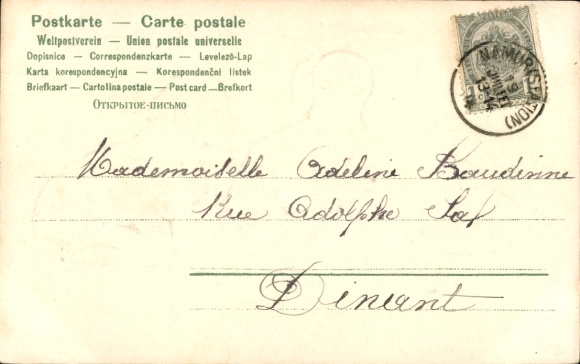 Postkarte — Carte postale
Weltpostverein — Union postale universelle
Dopisnice — Correspondenzkarte — Levelező-Lap
Karta korespondencyjna — Korespondenční listek
Briefkaart — Cartolina postale — Post card — Brefkort
Открытое-письмо
NAMUR (STATION)
Mademoiselle Adeline Baudinne
Rue Adolphe Sax
Dinant